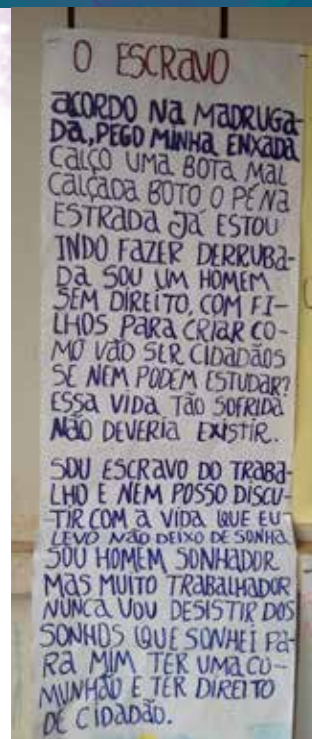 O ESCRAVO
ACORDO NA MADRUGA-
DA, PEGO MINHA ENXADA
CALÇO UMA BOTA MAL
CALÇADA BOTO O PÉ NA
ESTRADA JÁ ESTOU
INDO FAZER DERRUBA-
DA SOU UM HOMEM
SEM DIREITO, COM FI-
LHOS PARA CRIAR CO-
MO VÃO SER CIDADÃOS
SE NEM PODEM ESTUDAR?
ESSA VIDA TÃO SOFRIDA
NÃO DEVERIA EXISTIR.
SOU ESCRAVO DO TRABA-
LHO E NEM POSSO DISCU-
-TIR COM A VIDA QUE EU
LEVO NÃO DEIXO DE SONHA
SOU HOMEM SONHADOR
MAS MUITO TRABALHADOR
NUNCA VOU DESISTIR DOS
SONHOS QUE SONHEI PA-
RA MIM TER UMA CO-
MUNHÃO E TER DIREITO
DE CIDADÃO.